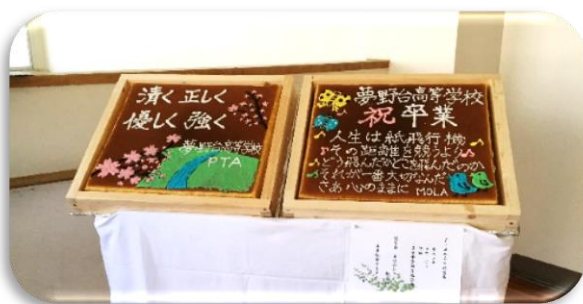 清く 正しく
優しく 強く
夢野台高等学校
PTA
夢野台高等学校
祝 卒業
人生は紙飛行機
その距離を競うより
どう飛んだかどこを飛んだのか
それが一番大切なんだ
さあ 心のままに MOLA